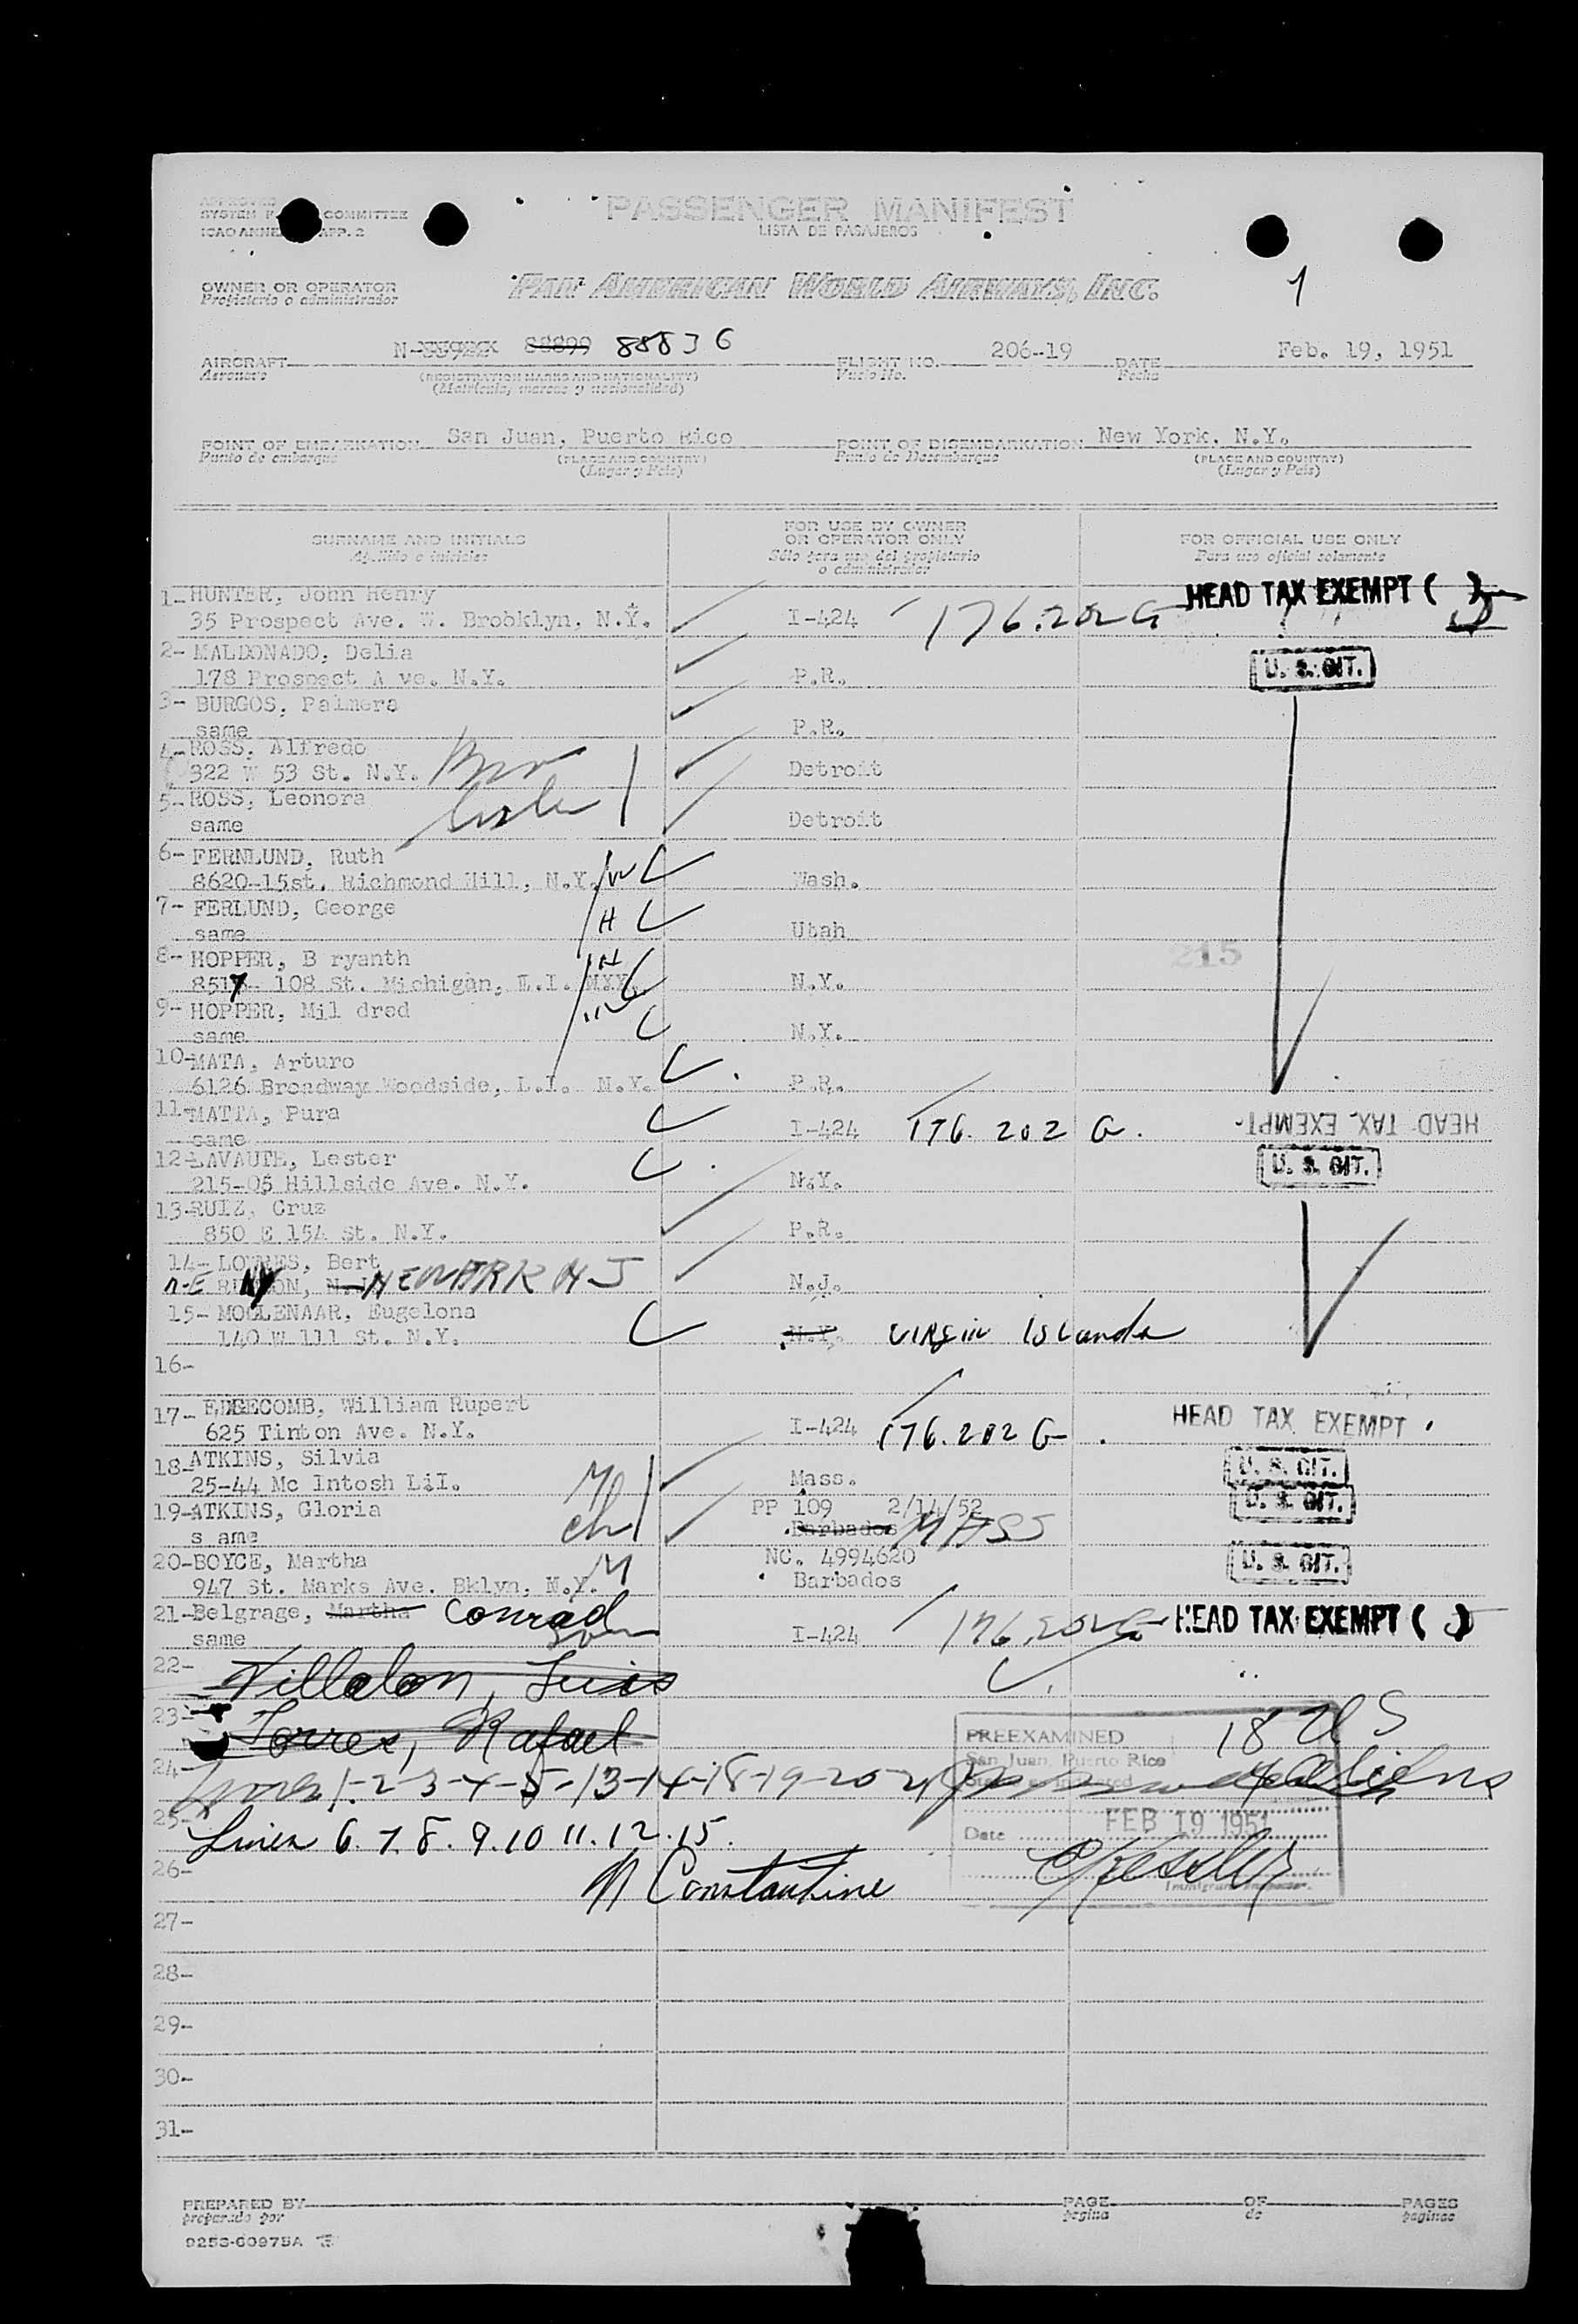 PASSENGER MANIFEST
LISTA DE PASAJEROS
APPROVED
SYSTEM COMMITTEE
ICAO ANNE APP. 2
OWNER OR OPERATOR
Propietario o administrador
PAN AMERICAN WORLD AIRWAYS, INC.
1
AIRCRAFT N- 88899 88836 FLIGHT NO. 206-19 DATE Feb. 19, 1951
Aeronave (REGISTRATION MARKS AND NATIONALITY) Vuelo No. Fecha
(Matrícula, marcas y nacionalidad)
POINT OF EMBARKATION San Juan, Puerto Rico POINT OF DISEMBARKATION New York, N.Y.
Punto de embarque (PLACE AND COUNTRY) Punto de Desembarque (PLACE AND COUNTRY)
(Lugar y País) (Lugar y País)
SURNAME AND INITIALS FOR USE BY OWNER OR OPERATOR ONLY FOR OFFICIAL USE ONLY
Apellido e iniciales Sólo para uso del propietario o administrador Para uso oficial solamente
1- HUNTER, John Henry HEAD TAX EXEMPT ( )
35 Prospect Ave. W. Brobklyn, N.Y. I-424 176.202 G
2- MALDONADO, Delia
178 Prospect A ve. N.Y. P.R. U. S. CIT.
3- BURGOS, Palmera
same P.R.
4- ROSS, Alfredo
322 W 53 St. N.Y. Detroit
5- ROSS, Leonora
same Detroit
6- FERNLUND, Ruth
8620-15st. Richmond Hill, N.Y. W Wash.
7- FERLUND, George
same H Utah
8- HOPPER, B ryanth H
8517- 108 St. Michigan, L.I. N.Y.
215
9- HOPPER, Mil dred
same N.Y.
10- MATA, Arturo
6126 Broadway Woodside, L.I. N.Y. P.R.
11- MATTA, Pura
same I-424 176. 202 G. HEAD TAX EXEMPT
12- LAVAUTE, Lester U. S. CIT.
215-05 Hillside Ave. N.Y. N.Y.
13- RUIZ, Cruz
850 E 154 St. N.Y. P.R.
14- LOWNES, Bert
NEWARK N J N.J.
15- MOOLENAAR, Eugelona
140 W 111 St. N.Y. N.Y. VIRGIN ISLANDS
16-
17- EDGECOMB, William Rupert HEAD TAX EXEMPT
625 Tinton Ave. N.Y. I-424 176.202 G
18- ATKINS, Silvia U. S. CIT.
25-44 Mc Intosh L.I. M Mass.
19- ATKINS, Gloria PP 109 2/14/52 U. S. CIT.
s ame ch Barbados MASS
20- BOYCE, Martha NC. 4994620 U. S. CIT.
947 St. Marks Ave. Bklyn, N.Y. M Barbados
21- Belgrage, Martha Conrad HEAD TAX EXEMPT ( )
same Son I-424 176.202 G
22- Villalon, Luis
23- Torres, Rafael
PREEXAMINED 18 US
San Juan, Puerto Rico
24- Lines 1-2-3-4-5-13-14-18-19-20-21 4 aliens
25- Lines 6. 7. 8. 9. 10 11. 12. 15.
Date FEB 19 1951
26- N Constantine
Immigrant Inspector.
27-
28-
29-
30-
31-
PREPARED BY PAGE OF PAGES
preparado por página de páginas
9253-60975A